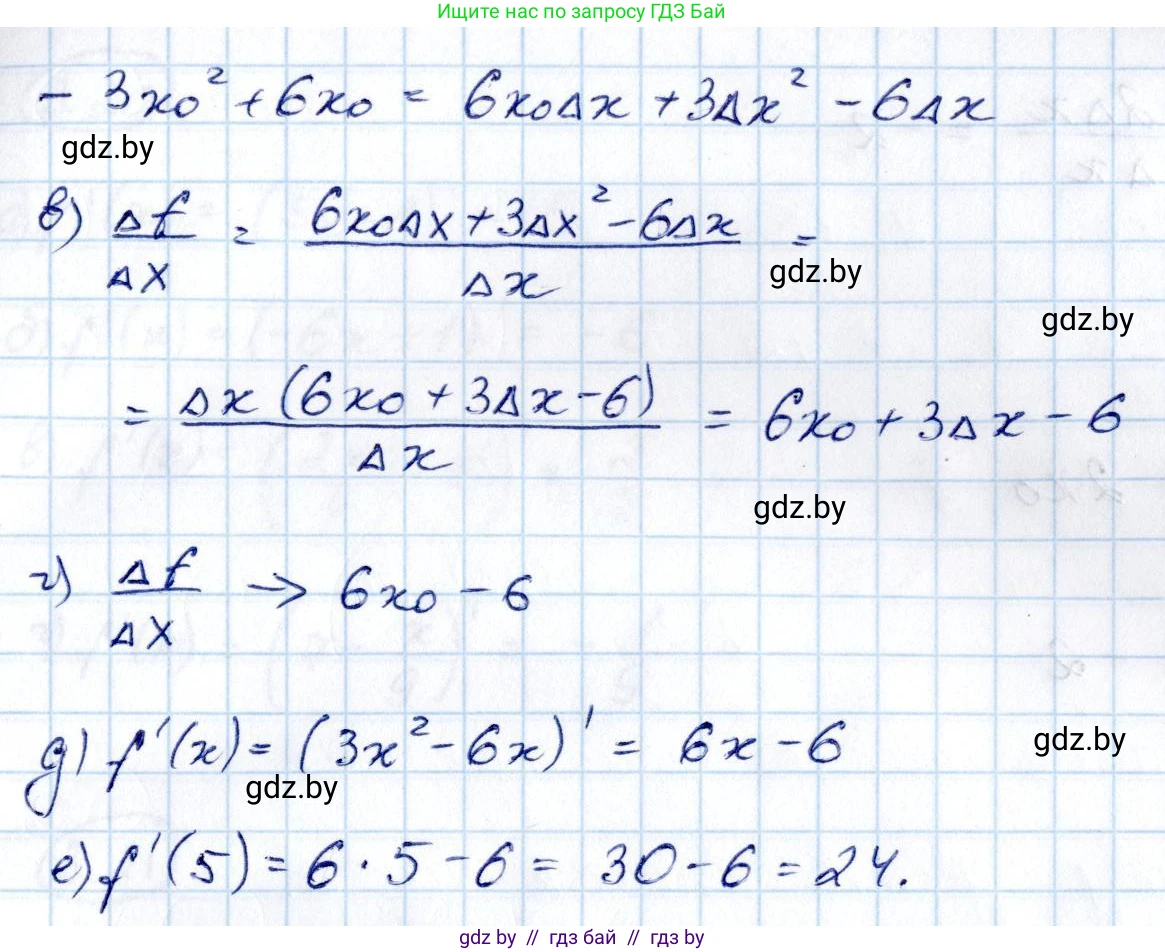 Ищите нас по запросу ГДЗ Бай
- 3x₀² + 6x₀ = 6x₀Δx + 3Δx² - 6Δx
gdz.by
в) Δf/Δx = (6x₀Δx + 3Δx² - 6Δx)/Δx =
gdz.by
gdz.by
= Δx (6x₀ + 3Δx - 6)/Δx = 6x₀ + 3Δx - 6
gdz.by
г) Δf/Δx → 6x₀ - 6
д) f'(x) = (3x² - 6x)' = 6x - 6
gdz.by
gdz.by
е) f'(5) = 6 · 5 - 6 = 30 - 6 = 24.
gdz.by // гдз бай // гдз by